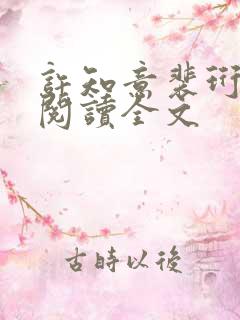 許知意裴珩
閱讀全文
古時以後